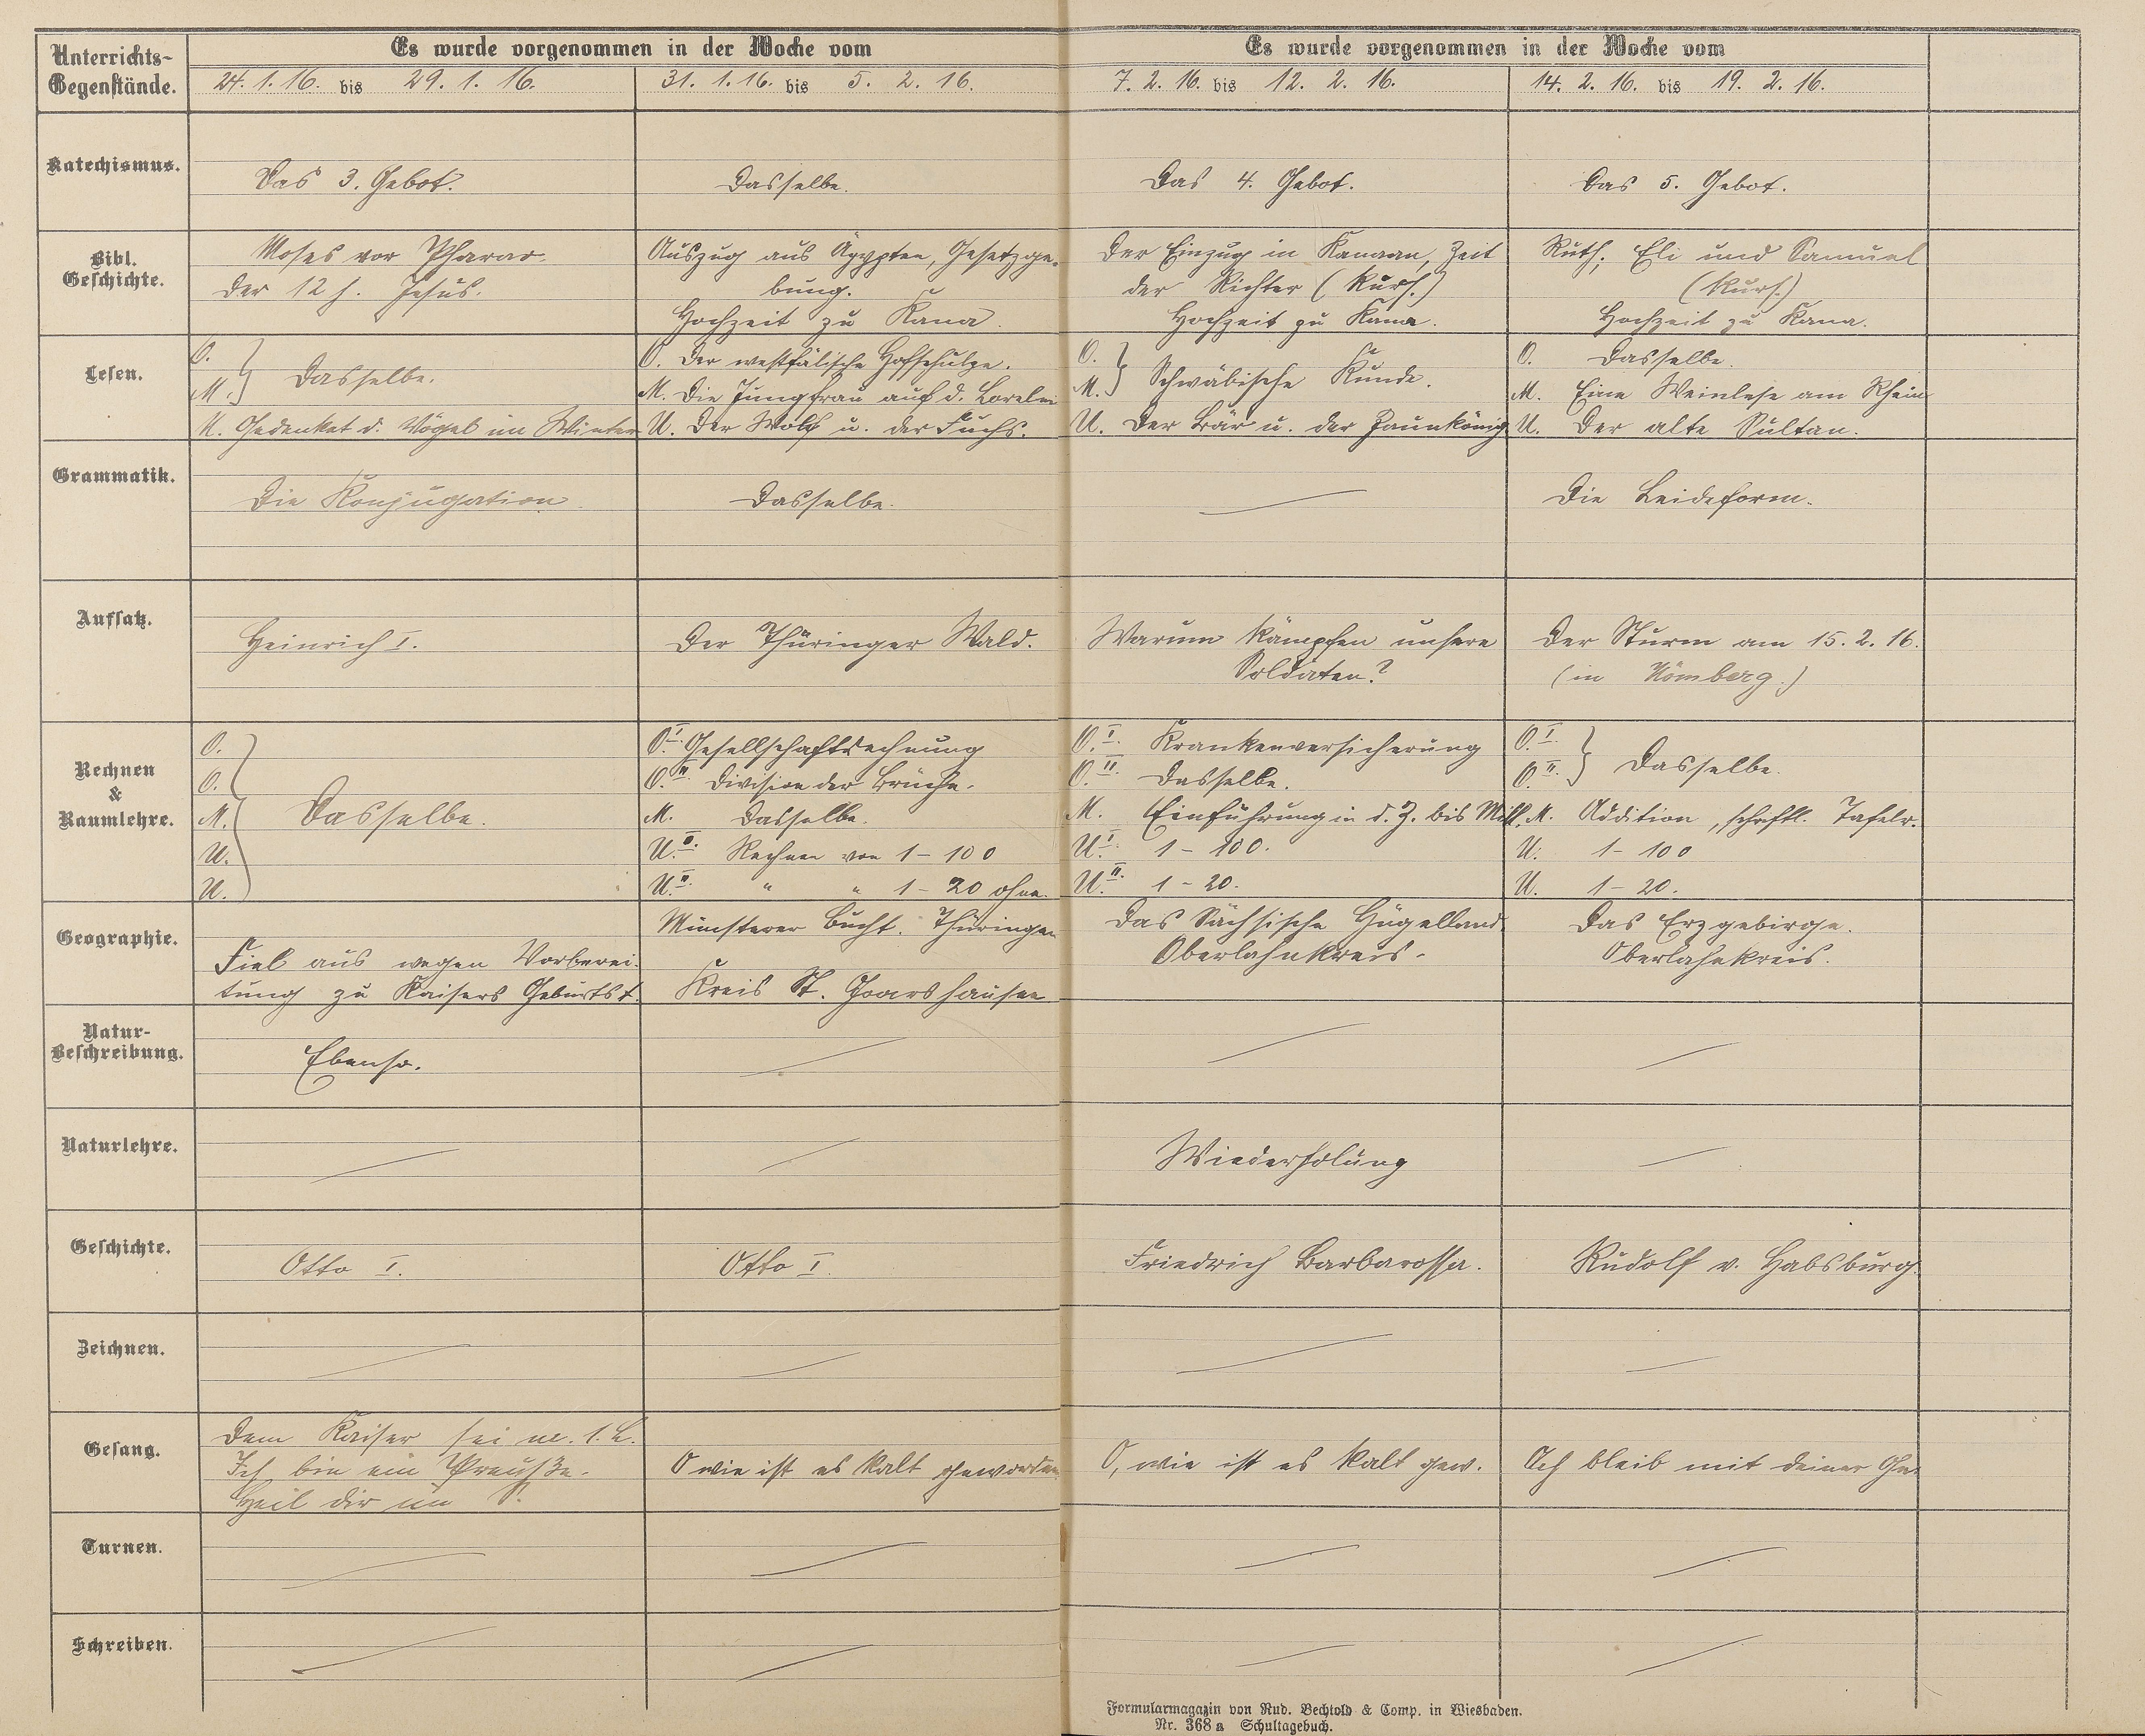 Unterrichts-
Gegenstände.
Es wurde vorgenommen in der Woche vom
24. 1. 16. bis 29. 1. 16.
31. 1. 16. bis 5. 2. 16.
Es wurde vorgenommen in der Woche vom
7. 2. 16. bis 12. 2. 16.
14. 2. 16. bis 19. 2. 16.
Katechismus.
Das 3. Gebot.
Dasselbe.
Das 4. Gebot.
Das 5. Gebot.
Bibl.
Geschichte.
Moses vor Pharao.
Der 12 j. Jesus.
Auszug aus Ägypten, Gesetzge-
bung.
Hochzeit zu Kana.
Der Einzug in Kanaan, Zeit
der Richter (kurz.)
Hochzeit zu Kana.
Ruth; Eli und Samuel
(kurz.)
Hochzeit zu Kana.
Lesen.
O.
M. } Dasselbe.
U. Gedenket d. Vögel im Winter
O. Der westfälische Hofschulze.
M. Die Jungfrau auf d. Lorelei
U. Der Wolf u. der Fuchs.
O.
M. } Schwäbische Kunde.
U. Der Bär u. der Zaunkönig
O. Dasselbe.
M. Eine Weinlese am Rhein
U. Der alte Sultan.
Grammatik.
Die Konjugation.
Dasselbe.
Die Leideform.
Aufsatz.
Heinrich I.
Der Thüringer Wald.
Warum kämpfen unsere
Soldaten?
Der Sturm am 15. 2. 16.
(in Hömberg.)
Rechnen
&
Raumlehre.
O.
O.
M. } Dasselbe.
U.
U.
O. I. Gesellschaftsrechnung
O. II. Division der Brüche.
M. Dasselbe.
U. I. Rechnen von 1 - 100
U. II. " " 1 - 20 ohne.
O. I. Krankenversicherung
O. II. Dasselbe.
M. Einführung in d. Z. bis Mill.
U. I. 1 - 100.
U. II. 1 - 20.
O. I.
O. II. } Dasselbe.
M. Addition, schriftl. Tafelr.
U. 1 - 100
U. 1 - 20.
Geographie.
Fiel aus wegen Vorberei-
tung zu Kaisers Geburtst.
Münsterer Bucht. Thüringen
Kreis St. Goarshausen
Das Sächsische Hügelland.
Oberlahnkreis.
Das Erzgebirge.
Oberlahnkreis.
Natur-
Beschreibung.
Ebenso.
Naturlehre.
Wiederholung
Geschichte.
Otto I.
Otto I.
Friedrich Barbarossa.
Rudolf v. Habsburg.
Zeichnen.
Gesang.
Dem Kaiser sei m. 1. L.
Ich bin ein Preuße.
Heil dir im S.
O wie ist es kalt geworden
O, wie ist es kalt gew.
Ach bleib mit deiner Gn.
Turnen.
Schreiben.
Formularmagazin von Rud. Bechtold & Comp. in Wiesbaden.
Nr. 368 a Schultagebuch.